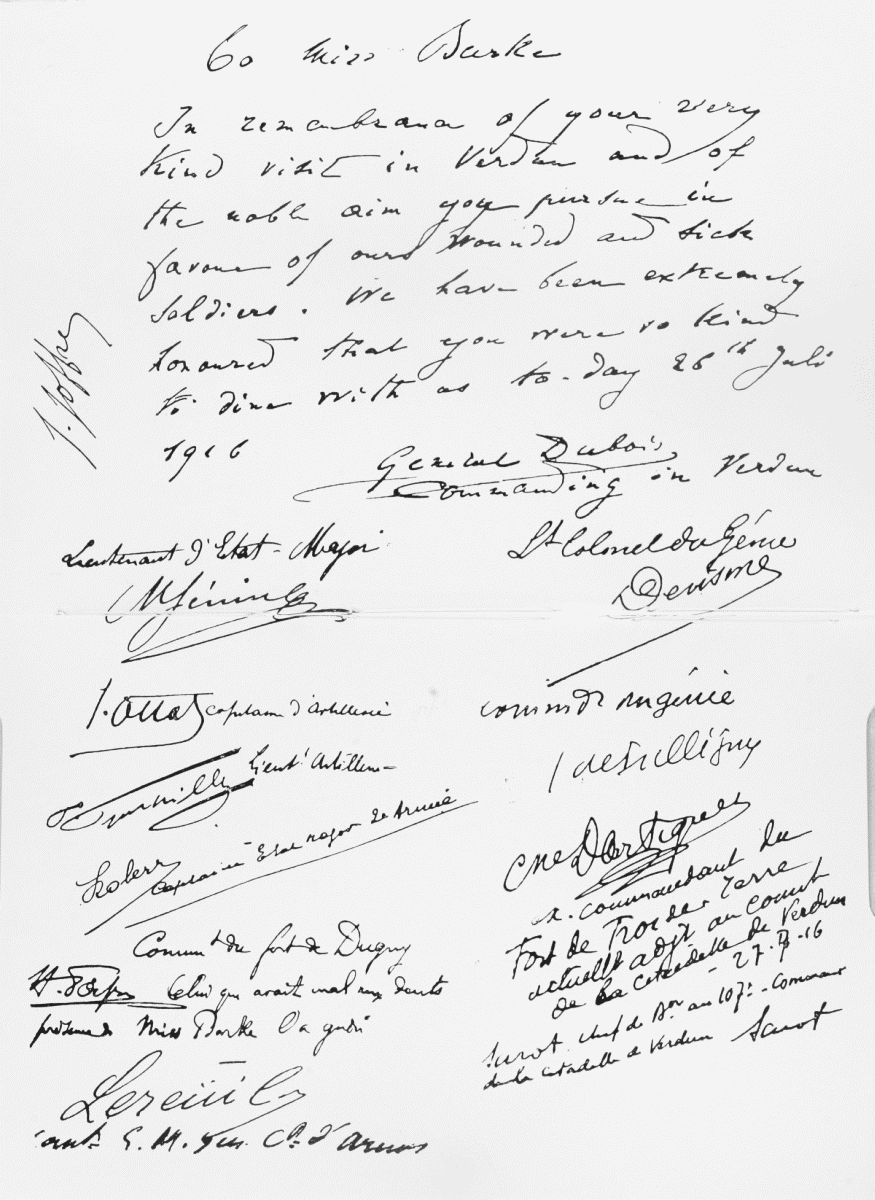 To Miss Burke
In remembrance of your very
kind visit in Verdun and of
the noble aim you pursue in
favour of ours wounded and sick
soldiers. We have been extremely
honoured that you were so kind
to dine with us to-day 26th Juli
1916
General Dubois
Commanding in Verdun
J. Joffre
Lieutenant d'Etat-Major
Lt Colonel du Génie
Devisme
capitaine d'artillerie
command génie
Lieutt Artillerie
Capitaine Etat major 2e Armée
Cne Dartigues
ex. commandant du
Fort de Froideterre
actuellt adjt au commt
de la citadelle de Verdun
- 27-7-16
Commt du fort de Dugny
Celui qui avait mal aux dents
présence de Miss Burke l'a guéri
Surot chef de Bon au 107e - Command
de la citadelle de Verdun Surot
E. M. d'Armes